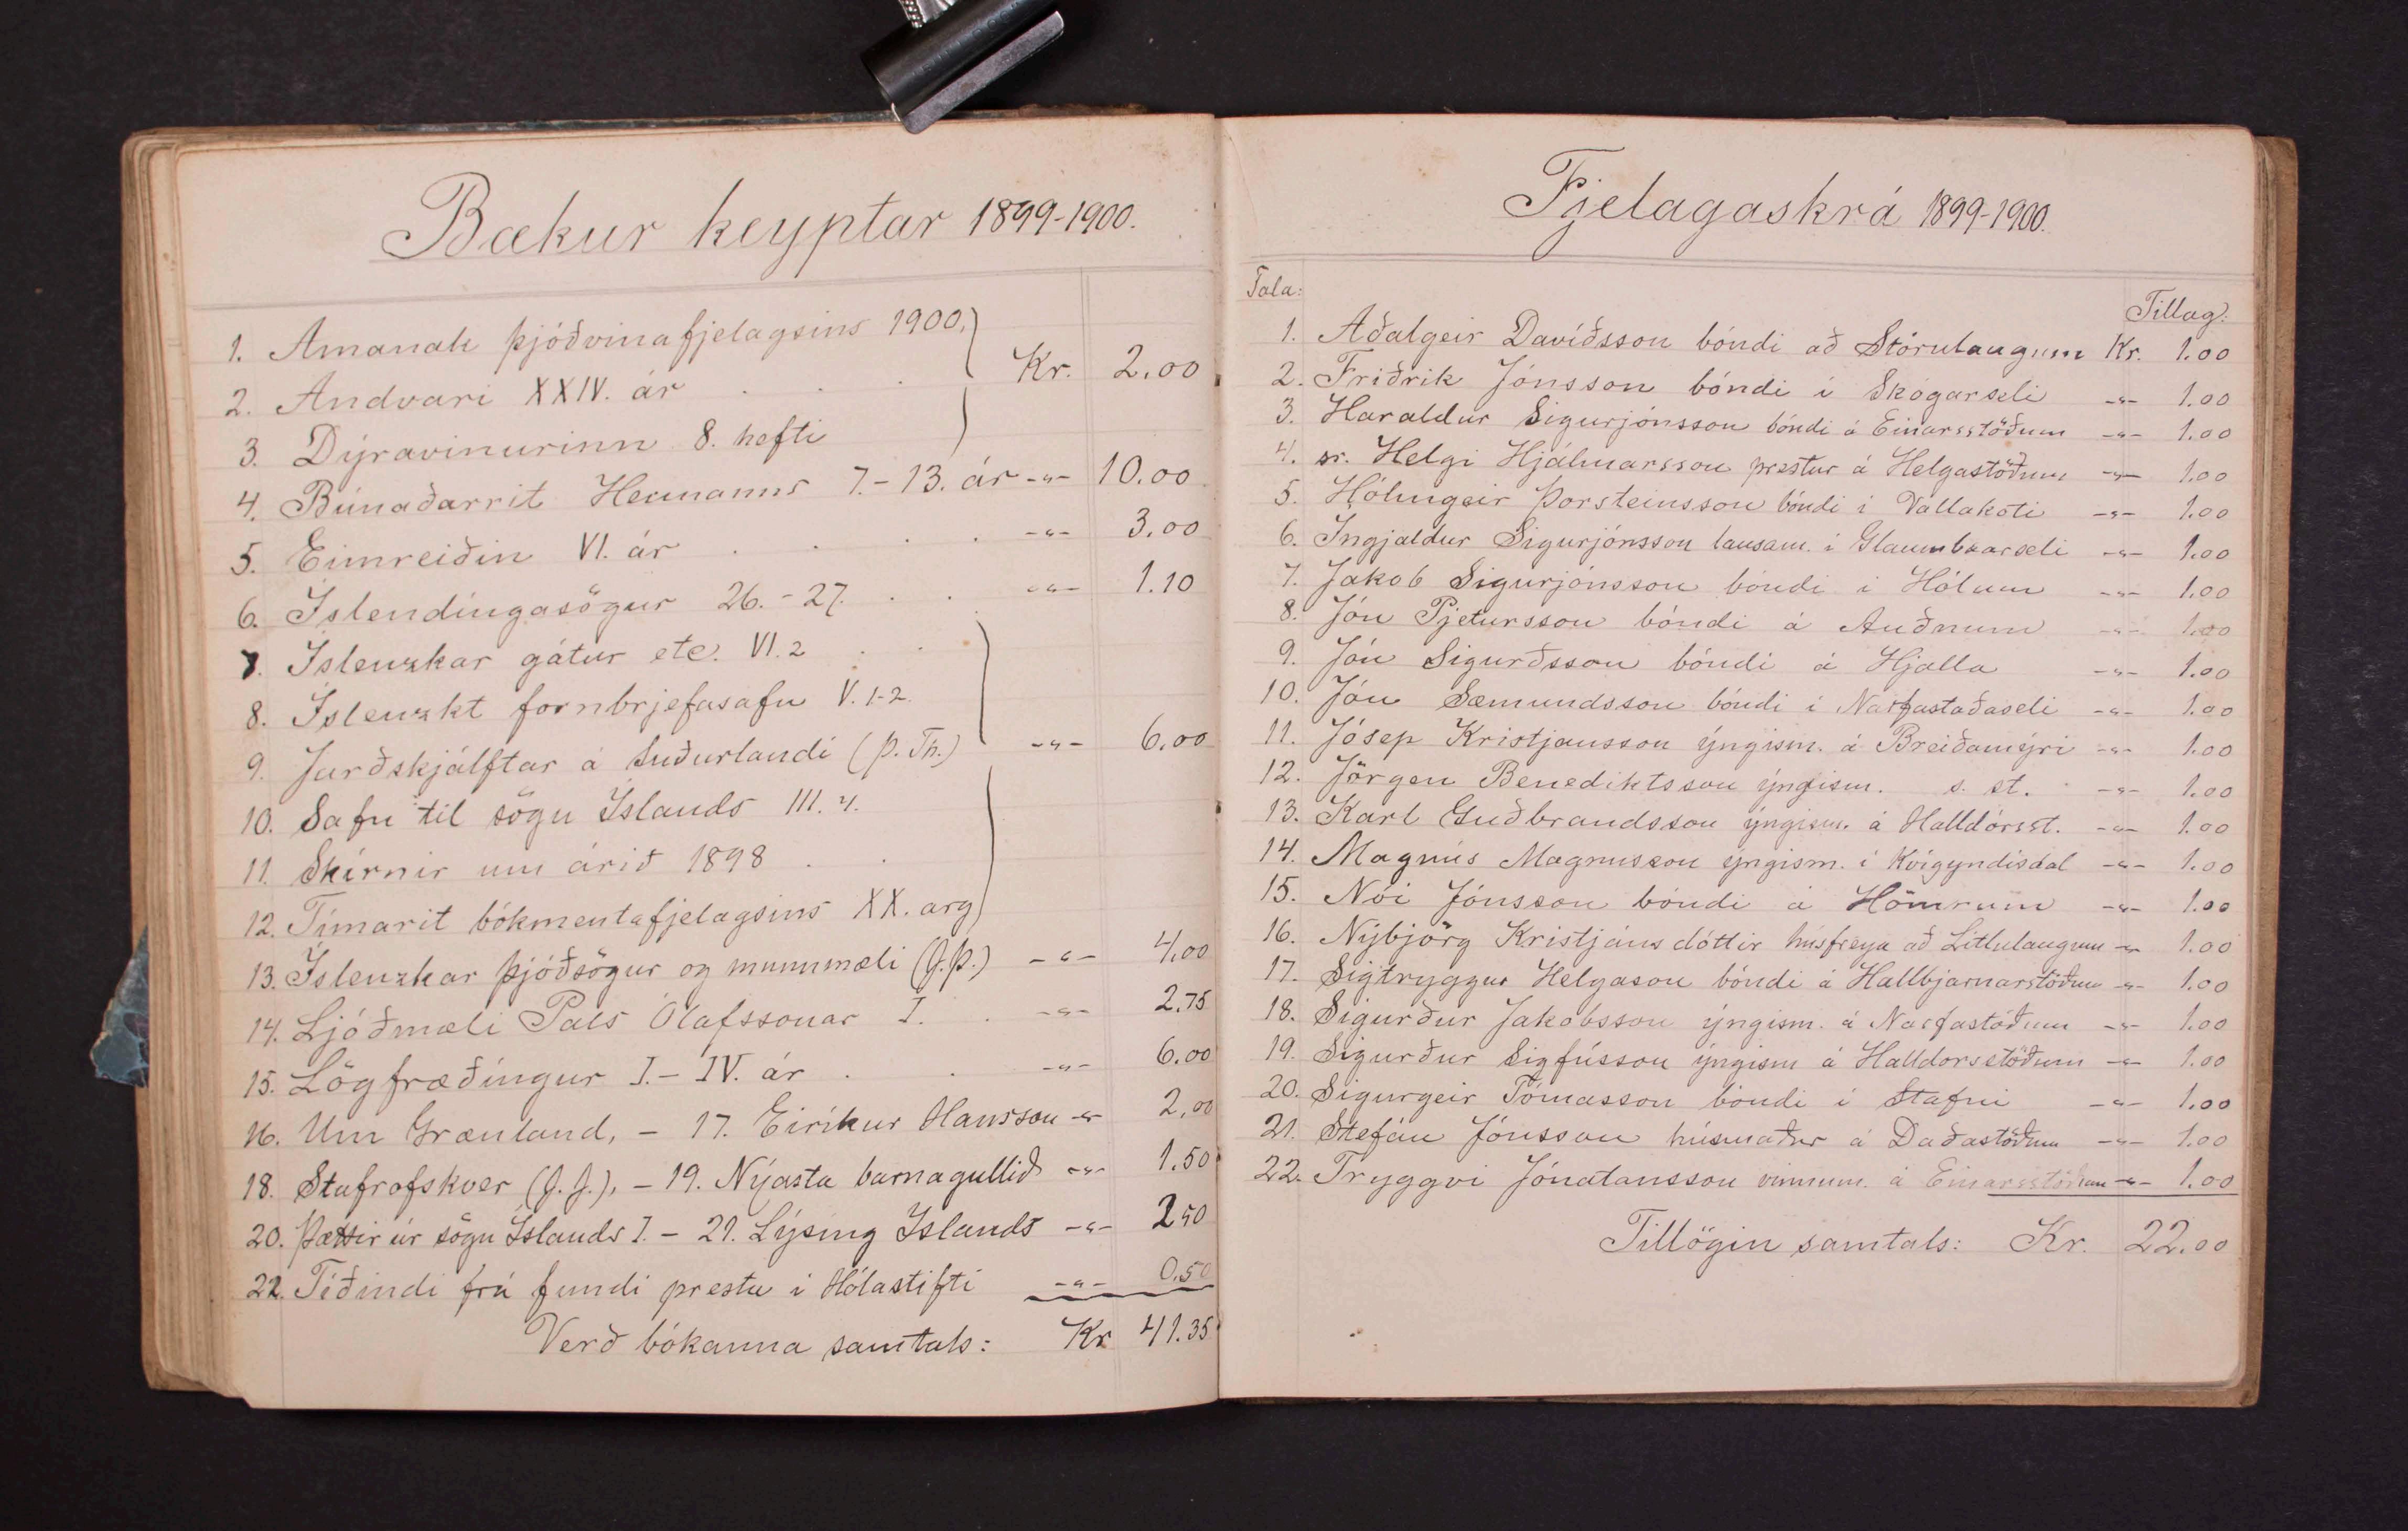 Bækur keyptar 1899-1900.
1. Amanak þjóðvinafjelagsins 1900.
2. Andvari XXIV. ár . . . Kr. 2.00
3. Dýravinurinn 8. hefti
4. Búnaðarrit Hermanns 7.-13. ár -"- 10.00
5. Eimreiðin VI. ár . . . . -"- 3.00
6. Íslendingasögur 26.-27. . . -"- 1.10
7. Íslenzkar gátur etc. VI.2 . .
8. Íslenzkt fornbrjefasafn V.1-2.
9. Jarðskjálftar á Suðurlandi (Þ.Th.) -"- 6.00
10. Safn til sögu Íslands III.4.
11. Skírnir um árið 1898 . .
12. Tímarit bókmentafjelagsins XX. arg
13. Íslenzkar þjóðsögur og munnmæli (J.Þ.) -"- 4.00
14. Ljóðmæli Páls Ólafssonar I. . -"- 2.75
15. Lögfræðíngur I.-IV. ár . . -"- 6.00
16. Um Grænland, - 17. Eiríkur Hansson -"- 2.00
18. Stafrofskver (J.J.), - 19. Nýasta barnagullið -"- 1.50
20. Þættir úr sögu Íslands I. - 21. Lýsing Íslands -"- 2 50
22. Tíðindi frá fundi presta í Hólastifti -"- 0.50
Verð bókanna samtals: Kr 41.35
Fjelagaskrá 1899-1900.
Tala: Tillag:
1. Aðalgeir Davíðsson bóndi að Stórulaugum Kr. 1.00
2. Friðrik Jónsson bóndi í Skógarseli -"- 1.00
3. Haraldur Sigurjónsson bóndi á Einarsstöðum -"- 1.00
4. sr. Helgi Hjálmarsson prestur á Helgastöðum -"- 1.00
5. Hólmgeir Þorsteinsson bóndi í Vallakoti -"- 1.00
6. Ingjaldur Sigurjónsson lausam. í Glaumbæarseli -"- 1.00
7. Jakob Sigurjónsson bóndi í Hólum -"- 1.00
8. Jón Pjetursson bóndi á Auðnum -"- 1.00
9. Jón Sigurðsson bóndi á Hjalla -"- 1.00
10. Jón Sæmundsson bóndi í Narfastaðaseli -"- 1.00
11. Jósep Kristjansson ýngism. á Breiðamýri -"- 1.00
12. Jörgen Benediktsson ýngism. s. st. -"- 1.00
13. Karl Guðbrandsson ýngism. á Halldórsst. -"- 1.00
14. Magnús Magnusson ýngism. í Kvígyndisdal -"- 1.00
15. Nói Jónsson bóndi á Hömrum -"- 1.00
16. Nýbjörg Kristjáns dóttir húsfreya að Litlulaugum -"- 1.00
17. Sigtryggur Helgason bóndi á Hallbjarnarstöðum -"- 1.00
18. Sigurður Jakobsson ýngism. á Narfastöðum -"- 1.00
19. Sigurður Sigfússon ýngism á Halldorsstöðum -"- 1.00
20. Sigurgeir Tómasson bóndi í Stafni -"- 1.00
21. Stefán Jónsson húsmaður á Daðastöðum -"- 1.00
22. Tryggvi Jónatansson vinnum. á Einarsstöðum -"- 1.00
Tillögin samtals: Kr. 22.00